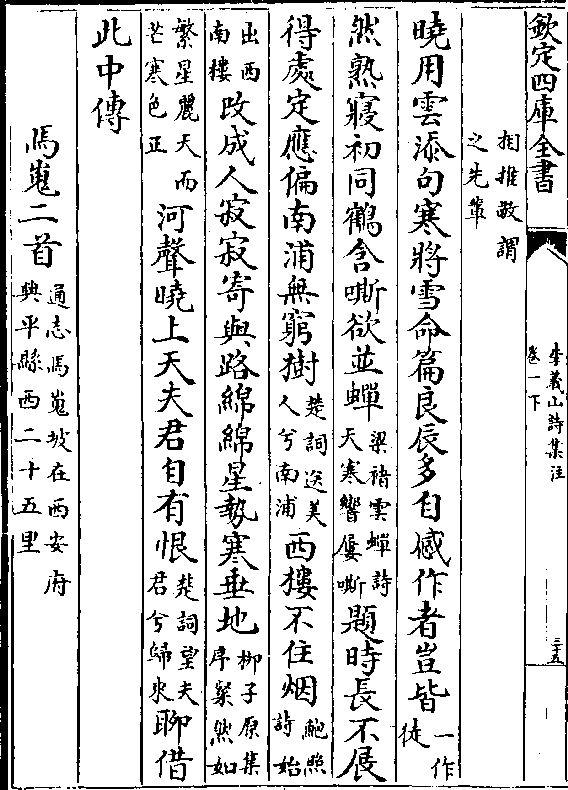 欽定四庫全書
李義山詩集注
卷一下
三十五
相推敬謂
之先輩
曉用雲添句寒將雪命篇良辰多自感作者豈皆一作徒
然熟寢初同鶴含嘶欲並蟬梁禇雲蟬詩天寒響屢嘶題時長不展
得處定應偏南浦無窮樹楚詞送美人兮南浦西樓不住烟鮑照詩始
出西南樓改成人寂寂寄與路綿綿星勢寒垂地柳子厚集序粲然如
繁星麗天而芒寒色正河聲曉上天夫君自有恨楚詞望夫君兮歸來聊借
此中傳
馬嵬二首通志馬嵬坡在西安府興平縣西二十五里